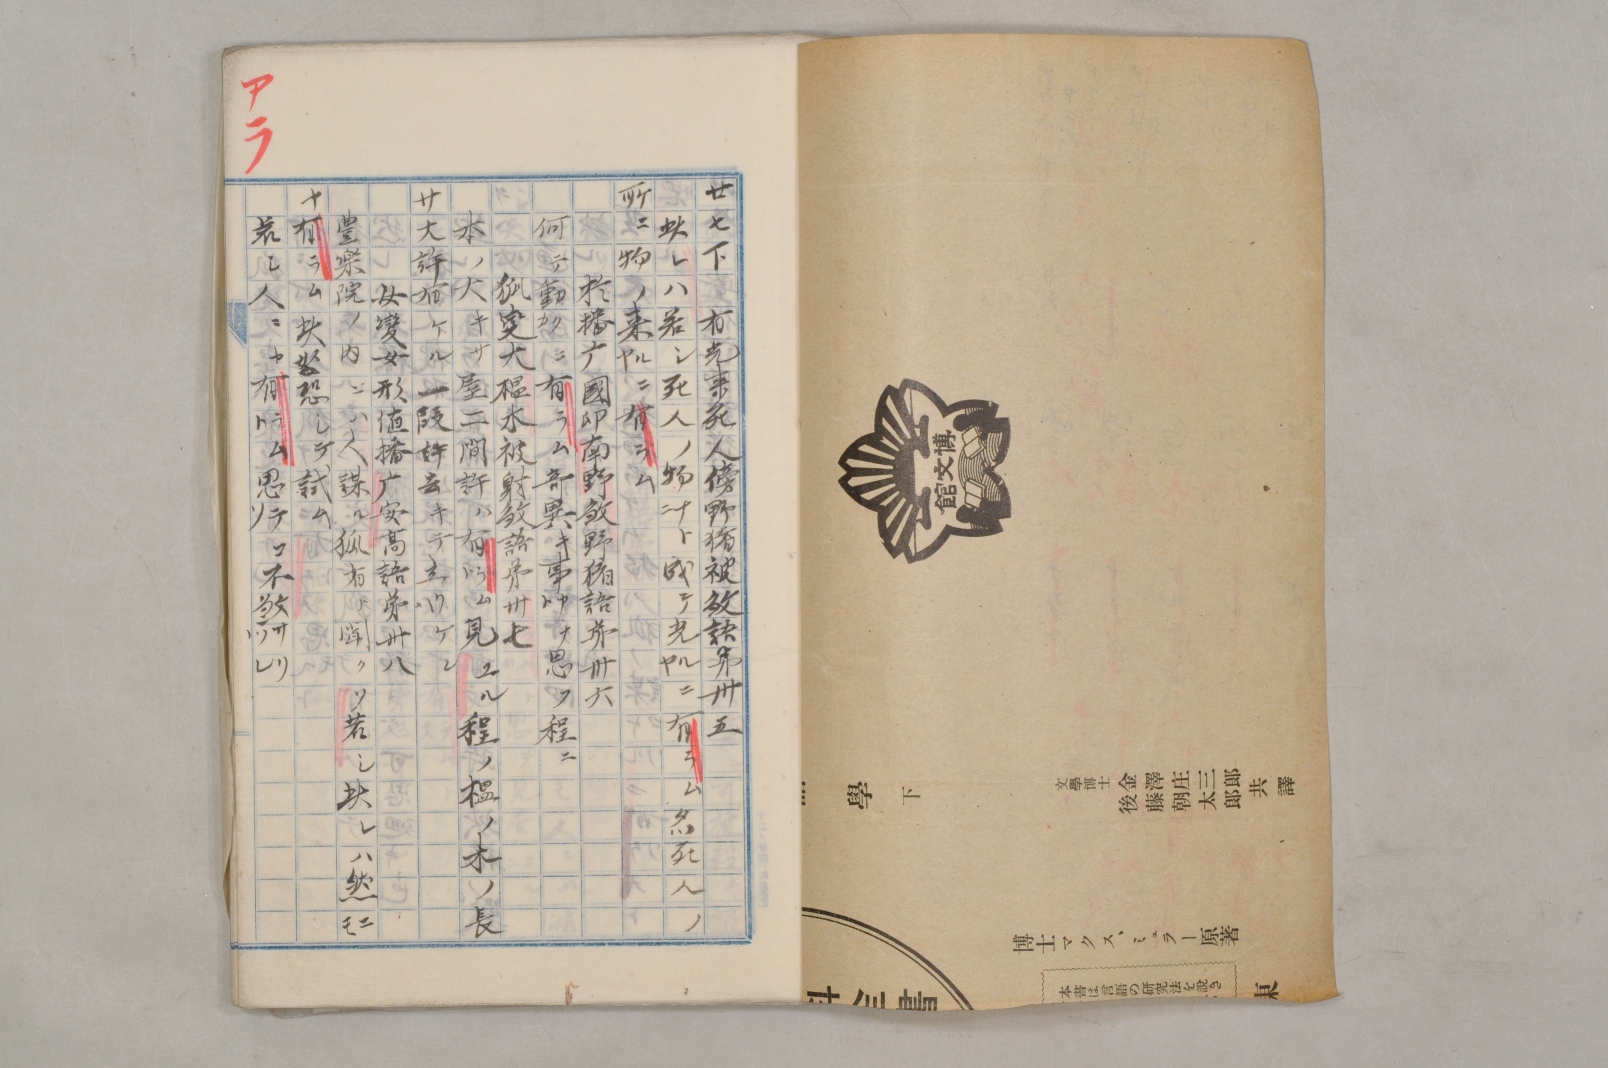 博文館
金澤庄三郎
文學博士
後藤朝太郎
共譯
學 下
博士マクス、ミュラー原著
本書は言語の研究法を說き
東
アラ
廿七下 有光来死人傍野猪被殺語第卅五
此レハ若シ死人ノ物ナト成テ光ヤルニ有ラム亦死人ノ
所ニ物ノ来ヤルニ有ラム
於播广國印南野殺野猪語第卅六
何テ動カンニ有ラム奇異キ事カナ思フ程ニ
狐変大榲木被射殺語第卅七
本ノ大キサ屋二間許ハ有ラム見ユル程ノ榲ノ木ノ長
廿丈許有ケル一段許去キテ立リケレ
女變女形値播广安高語第卅八
豊樂院ノ内ニハ人謀ル狐有聞クソ若シ此レハ然ニモ
ヤ有ラム此恐シテ試ム
若シ人ニヤ有ラム思テコ不殺サリツレ